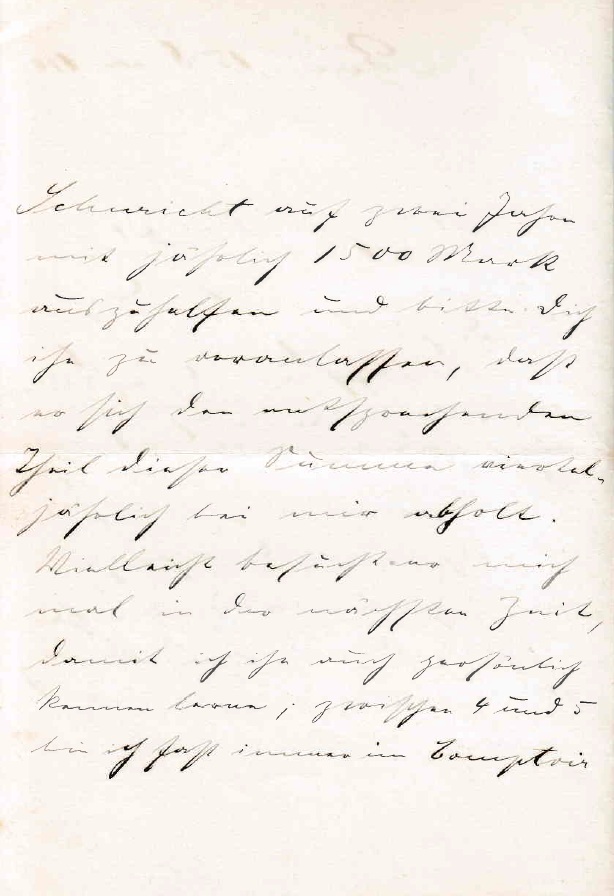 Schuricht auf zwei Jahre
mit jährlich 1500 Mark
auszuhelfen und bitte Dich
ihn zu veranlassen, daß
er sich den entsprechenden
Theil dieser Summe viertel-
jährlich bei mir abholt.
Vielleicht besucht er mich
mal in der nächsten Zeit,
damit ich ihn auch persönlich
kennen lerne; zwischen 4 und 5
bin ich fast immer im Comptoir